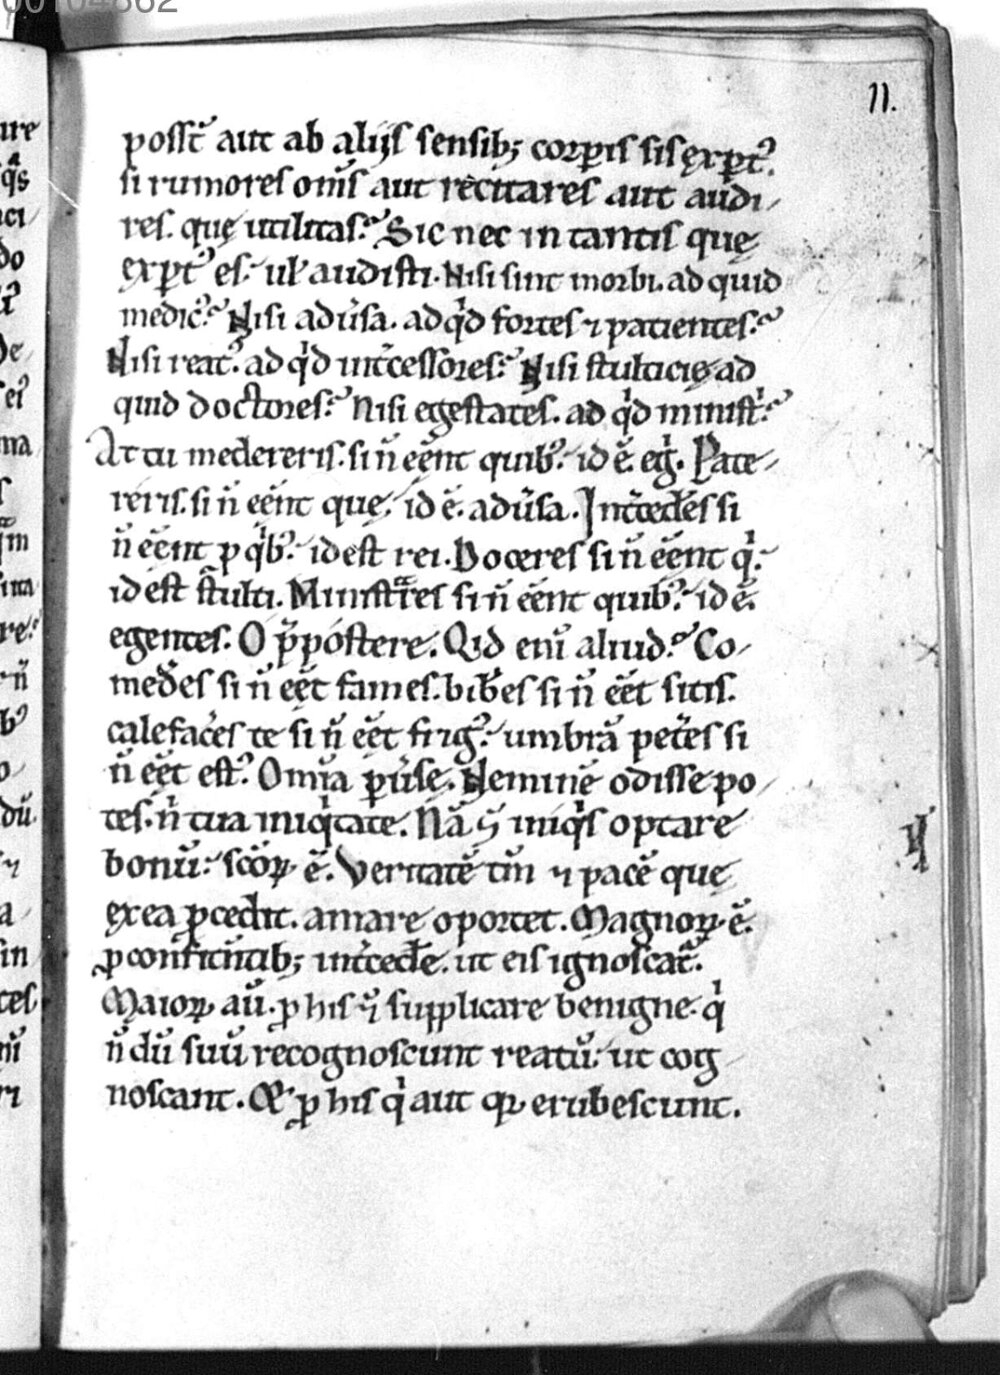 00104862
11.
possēt aut ab alijs sensib; corꝑis sis exꝑtꝰ.
si rumores om̄s aut recitares aut audi-
res. quę utilitas? Sic nec in tantis quę
exꝑtꝰ es. uł audisti. Nisi sint morbi. ad quid
medicꝰ? Nisi adūsa. ad qͥd fortes ⁊ patientes?
Nisi reatꝰ. ad qͥd int̄cessores? Nisi stulticię ad
quid doctores? Nisi egestates. ad qͥd ministͥ?
At tu medereris. si n̄ eēnt quibꝰ. id ē. egͥ. Pate-
reris. si n̄ eēnt que. id ē. adūsa. Int̄ced̄es si
n̄ eēnt ꝓ qͥbꝰ. id est rei. Doceres si n̄ eēnt qͥ.
id est stulti. Minist̄res si n̄ eēnt quibꝰ. id ē.
egentes. O p̄postere. Qͥd eni aliud? Co-
med̄es si n̄ eēt fames. bib̄es si n̄ eēt sitis.
calefac̄es te si n̄ eēt frigꝰ. umbrā pet̄es si
n̄ eēt estꝰ. Omīa ꝑūse. Neminē odisse po-
tes. nͥ tua iniqͥtate. Nā ⁊ iniqͥs optare
bonū. sc̄oꝝ ē. Veritatē tm̄ ⁊ pacē quę
ex ea ꝓcedit. amare oportet. Magnoꝝ ē.
ꝓ confitentib; int̄ced̄e. ut eis ignoscat̄.
Maioꝝ aū. ꝓ his ⁊ supplicare benigne. qͥ
n̄ dū suū recognoscunt reatū. ut cog
noscant. ꝓ his qͥ aut erubescunt.